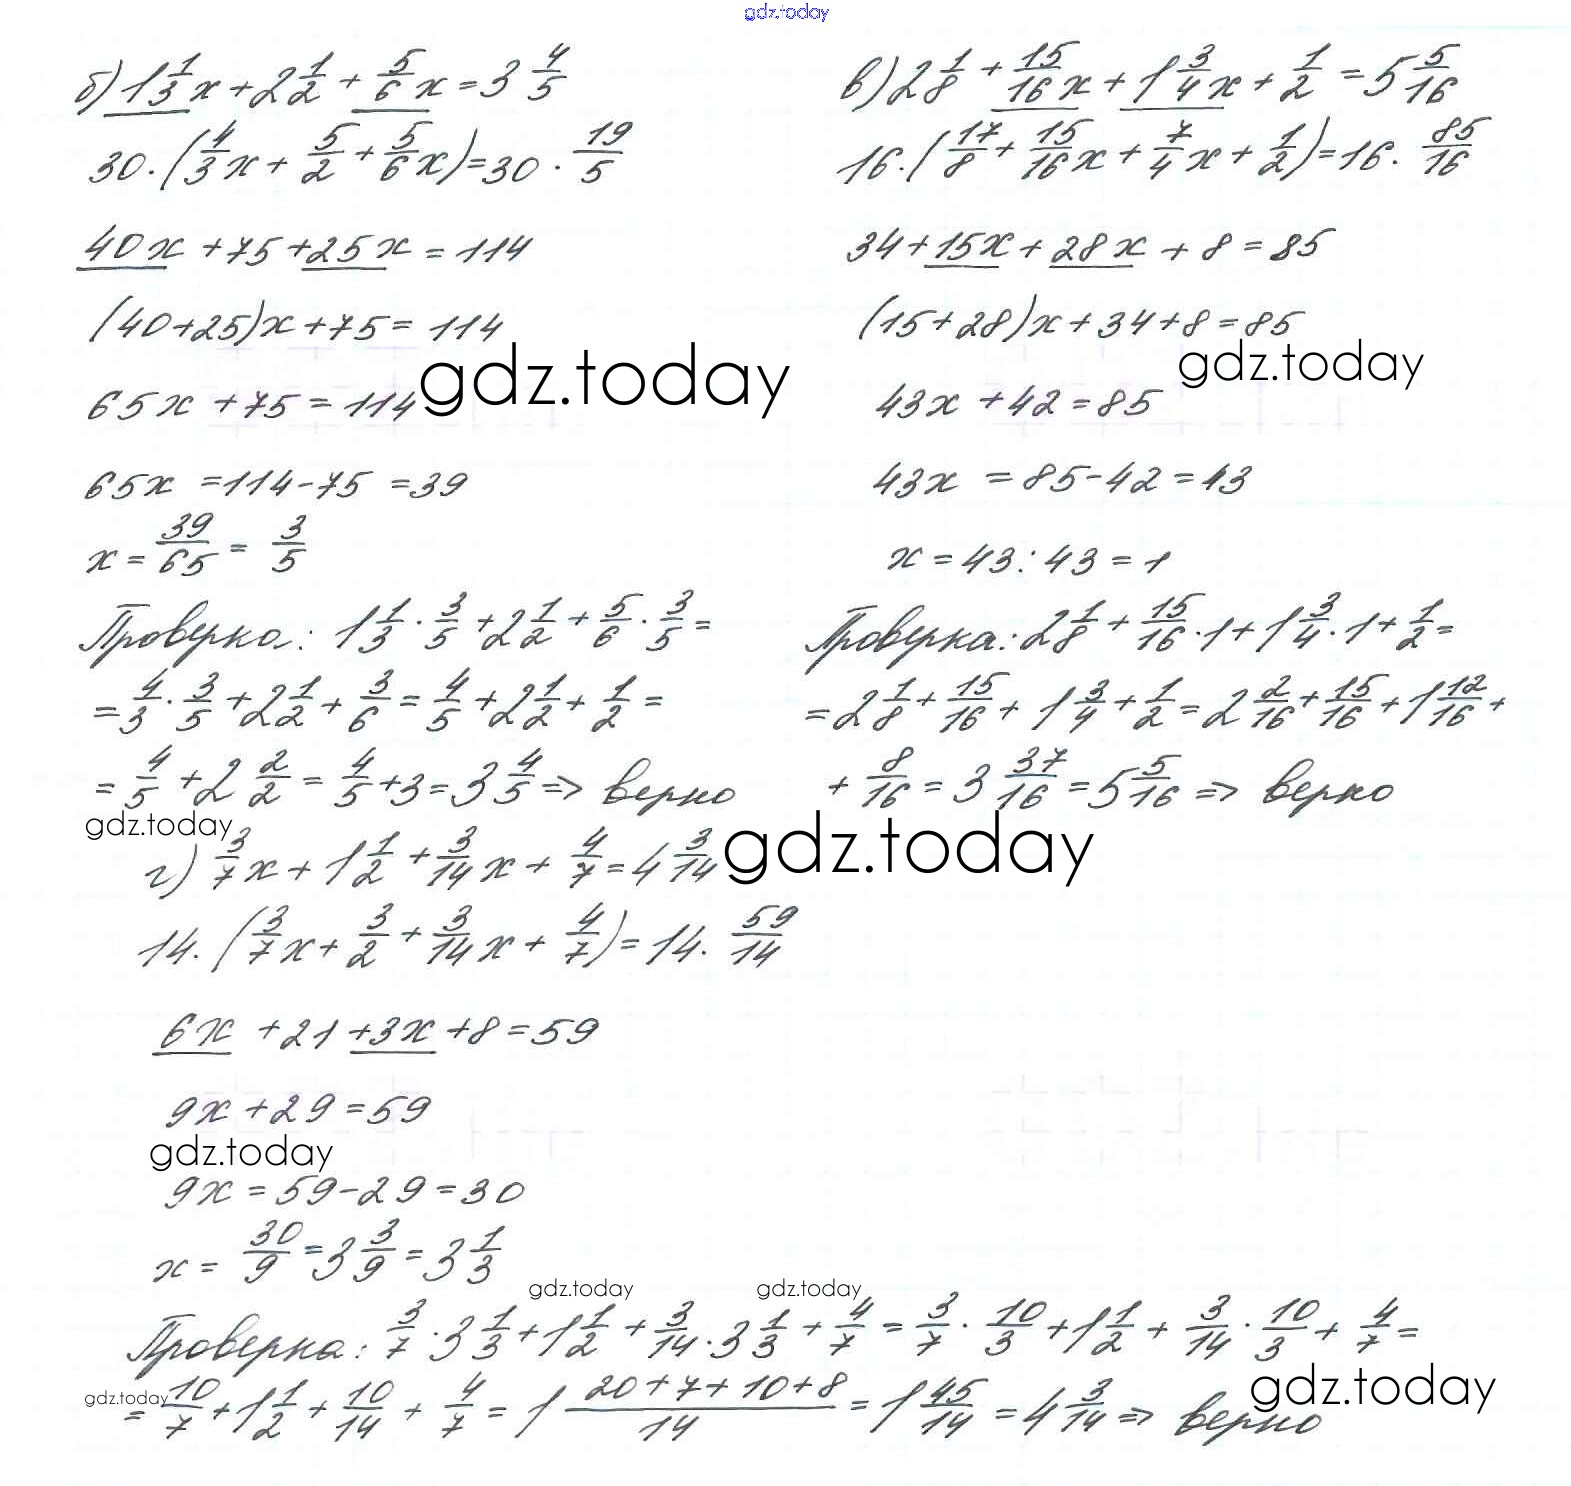 gdz.today
б) 1 1/3 x + 2 1/2 + 5/6 x = 3 4/5
30·(4/3 x + 5/2 + 5/6 x) = 30 · 19/5
40x + 75 + 25x = 114
(40+25)x + 75 = 114
65x + 75 = 114
gdz.today
65x = 114 - 75 = 39
x = 39/65 = 3/5
Проверка: 1 1/3 · 3/5 + 2 1/2 + 5/6 · 3/5 =
= 4/3 · 3/5 + 2 1/2 + 3/6 = 4/5 + 2 1/2 + 1/2 =
= 4/5 + 2 2/2 = 4/5 + 3 = 3 4/5 => верно
gdz.today
в) 2 1/8 + 15/16 x + 1 3/4 x + 1/2 = 5 5/16
16·(17/8 + 15/16 x + 7/4 x + 1/2) = 16 · 85/16
34 + 15x + 28x + 8 = 85
(15+28)x + 34 + 8 = 85
gdz.today
43x + 42 = 85
43x = 85 - 42 = 43
x = 43 : 43 = 1
Проверка: 2 1/8 + 15/16 · 1 + 1 3/4 · 1 + 1/2 =
= 2 1/8 + 15/16 + 1 3/4 + 1/2 = 2 2/16 + 15/16 + 1 12/16 +
+ 8/16 = 3 37/16 = 5 5/16 => верно
gdz.today
г) 3/7 x + 1 1/2 + 3/14 x + 4/7 = 4 3/14
14·(3/7 x + 3/2 + 3/14 x + 4/7) = 14 · 59/14
6x + 21 + 3x + 8 = 59
9x + 29 = 59
gdz.today
9x = 59 - 29 = 30
x = 30/9 = 3 3/9 = 3 1/3
gdz.today gdz.today
Проверка: 3/7 · 3 1/3 + 1 1/2 + 3/14 · 3 1/3 + 4/7 = 3/7 · 10/3 + 1 1/2 + 3/14 · 10/3 + 4/7 =
gdz.today gdz.today
= 10/7 + 1 1/2 + 10/14 + 4/7 = 1 (20+7+10+8)/14 = 1 45/14 = 4 3/14 => верно